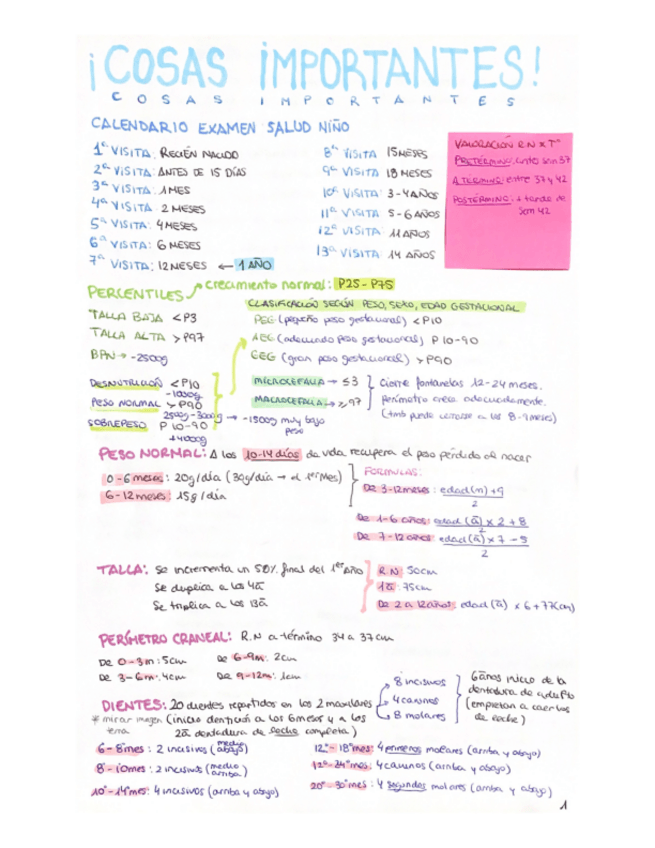 ¡COSAS IMPORTANTES!
COSAS IMPORTANTES
CALENDARIO EXAMEN SALUD NIÑO
1ª VISITA: RECIÉN NACIDO
2ª VISITA: ANTES DE 15 DÍAS
3ª VISITA: 1 MES
4ª VISITA: 2 MESES
5ª VISITA: 4 MESES
6ª VISITA: 6 MESES
7ª VISITA: 12 MESES ← 1 AÑO
8ª VISITA 15 MESES
9ª VISITA 18 MESES
10ª VISITA: 3-4 AÑOS
11ª VISITA: 5-6 AÑOS
12ª VISITA: 11 AÑOS
13ª VISITA 14 AÑOS
VALORACIÓN R.N x Tª
PRETÉRMINO: antes sem 37
A TÉRMINO: entre 37 y 42
POSTÉRMINO: + tarde de
sem 42
PERCENTILES → crecimiento normal: P25-P75
TALLA BAJA <P3
TALLA ALTA >P97
BPN → -2500g
CLASIFICACIÓN SEGÚN PESO, SEXO, EDAD GESTACIONAL
PEG (pequeño peso gestacional) <P10
AEG (adecuado peso gestacional) P10-90
GEG (gran peso gestacional) >P90
DESNUTRICIÓN <P10
-1000g
PESO NORMAL >P90
2500g-3000g → -1500g muy bajo
peso
SOBREPESO P10-90
+4000g
MICROCEFALIA → ≤3
MACROCEFALIA → ≥97
Cierre fontanelas 12-24 meses.
perímetro crece adecuadamente.
(tmb puede cerrarse a los 8-9 meses)
PESO NORMAL: A los 10-14 días de vida recupera el peso perdido al nacer
0-6 meses: 20g/día (30g/día → el 1er Mes)
6-12 meses: 15g/día
FORMULAS:
De 3-12 meses: edad(m)+9
2
De 1-6 años: edad (a) x 2 + 8
2
De 7-12 años: edad(a) x 7 - 5
2
TALLA: Se incrementa un 50% final del 1er AÑO
Se duplica a los 4a
Se triplica a los 13a
R.N 50cm
1a: 75cm
De 2 a 12 años: edad (a) x 6 + 77(cm)
PERÍMETRO CRANEAL: R.N a término 34 a 37 cm
De 0-3m: 5cm De 6-9m: 2cm
De 3-6m: 4cm De 9-12m: 1cm
DIENTES: 20 dientes repartidos en los 2 maxilares
* mirar imagen tema
(inicio dentición a los 6 meses y a los
2a dentadura de leche completa)
8 incisivos
4 caninos
8 molares
6 años inicio de la
dentadura de adulto
(empiezan a caer los
de leche)
6-8 mes: 2 incisivos (medio abajo)
8-10mes: 2 incisivos (medio arriba)
10-14mes: 4 incisivos (arriba y abajo)
12-18mes: 4 primeros molares (arriba y abajo)
12-24mes: 4 caninos (arriba y abajo)
20-30mes: 4 segundos molares (arriba y abajo)
1